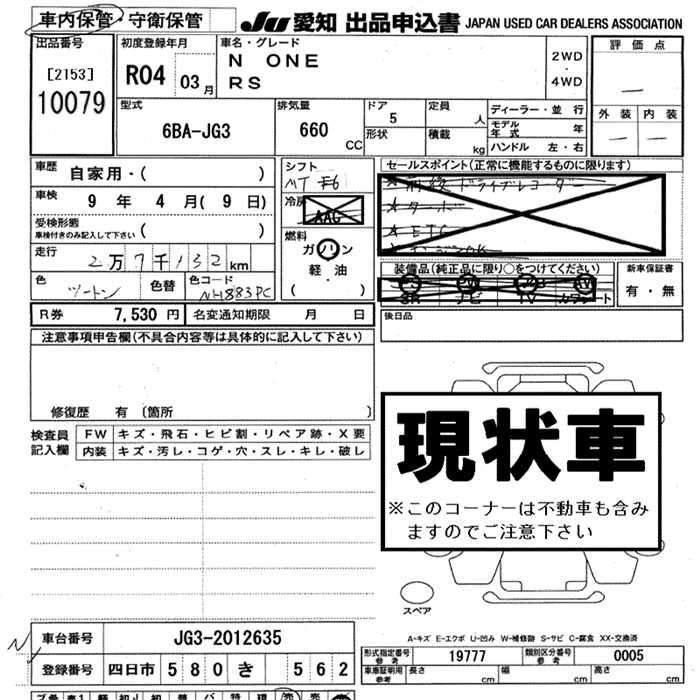 車内保管・守衛保管
JU 愛知 出品申込書 JAPAN USED CAR DEALERS ASSOCIATION
出品番号
[2153]
10079
初度登録年月
R04 03月
車名・グレード
N ONE
RS
2WD
・
4WD
評価点
―
外装 内装
― ―
型式
6BA-JG3
排気量
660 CC
ドア
5
形状
定員 人
積載 kg
ディーラー・並行
モデル年式 年
ハンドル 左・右
車歴
自家用・( )
車検
9年 4月(9日)
受検形態
車検付きのみ記入して下さい ( )
走行
2万7千132km
色
ツートン
色替
色コード
NH883PC
シフト
MT F6
冷房
AAC
燃料
ガソリン
軽・油
( )
セールスポイント(正常に機能するものに限ります)
* 前後ドライブレコーダー
* ターボ
* ETC
装備品(純正品に限り○をつけてください)
SR ナビ TV カワシート
新車保証書
有・無
R券 7,530円 名変通知期限 月 日
後日品
注意事項申告欄(不具合内容等は具体的に記入して下さい)
修復歴 有 〔箇所 〕
検査員記入欄
FW キズ・飛石・ヒビ割・リペア跡・X要
内装 キズ・汚レ・コゲ・穴・スレ・キレ・破レ
現状車
※このコーナーは不動車も含み
ますのでご注意下さい
スペア
A-キズ E-エクボ U-凹み W-補修跡 S-サビ C-腐食 XX-交換済
車台番号 JG3-2012635
登録番号 四日市 580 き 562
形式指定番号 参考 19777
類別区分番号 参考 0005
車両証明用 参考 長さ cm 幅 cm 高さ cm